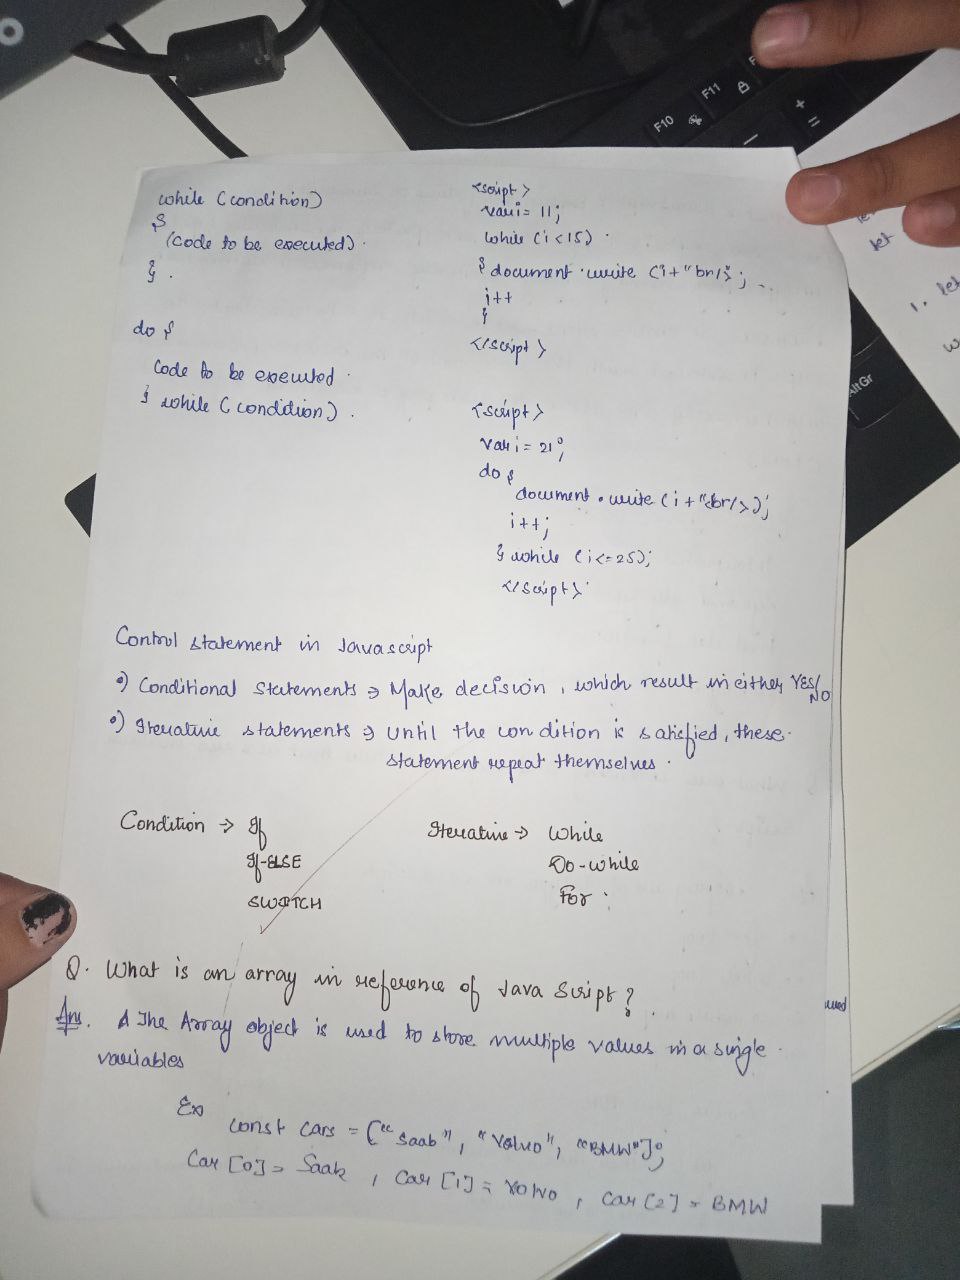 F10
F11
+
=
AltGr
let
1. let
while (condition)
{
(code to be executed).
}.
do {
Code to be executed.
} while (condition).
<script>
var i = 11;
while (i<15)
{ document.write (i+"br/>";
i++
}
</script>
<script>
var i = 21;
do {
document.write (i+"<br/>);
i++;
} while (i<=25);
</script>
Control statement in Javascript
•) Conditional statements → Make decision, which result in either YES/NO
•) Iterative statements → until the condition is satisfied, these
statement repeat themselves.
Condition → If
If-ELSE
SWITCH
Iterative → While
Do-while
For
Q. What is an array in reference of Java Script?
used
Ans. The Array object is used to store multiple values in a single
variables
Ex
const cars = ["Saab", "Volvo", "BMW"];
Car [0] = Saab, Car [1] = Volvo, Car [2] = BMW